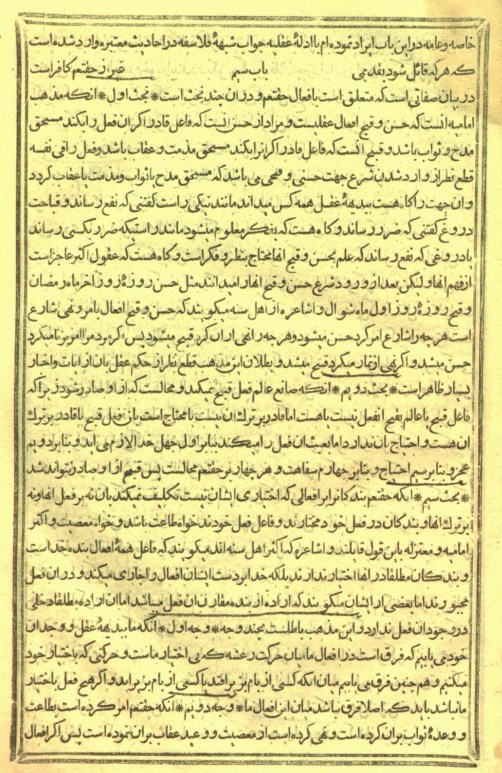 خاصه و عامه در این باب ایراد نموده‌ام با ادلهٔ عقلیه جواب شبههٔ فلاسفه در احادیث معتبره وارد شده است
که هر که قائل شود بقدیمی غیر از حقتعم کافر است باب سیم
در بیان صفاتی است که متعلق است بافعال حقتعم و در ان چند بحث است * بحث اول * انکه مذهب
امامیه انست که حسن و قبح افعال عقلیست و مراد از حسن انست که فاعل قادر اگر ان فعل را بکند مستحق
مدح و ثواب باشد و قبیح انست که فاعل قادر اگر انرا بکند مستحق مذمت و عقاب باشد و فعل را فی نفسه
قطع نظر از وارد شدن شرع جهت حسنی و قبحی می باشد که مستحق مدح یا ثواب و مذمت یا عقاب گردد
و ان جهت را گاه هست ببدیههٔ عقل همه کس میداند مانند نیکی راست گفتنی که نفع رساند و قباحت
دروغ گفتنی که ضرر رساند و گاه هست که بفکر معلوم میشود مانند راستیکه ضرر بکسی رساند
یا دروغی که نفع رساند که علم بحسن و قبح انها محتاج بنظر و فکر است و گاه هست که عقول اکثر عاجز است
از فهم انها ولیکن بعد از ورود شرع حسن و قبح انها را میدانند مثل حسن روزهٔ روز اخر ماه رمضان
و قبح روزهٔ روز اول ماه شوال و اشاعره از اهل سنه میگویند که حسن و قبح افعال بامر و نهی شارع
است هر چه را شارع امر کرد حسن میشود و هر چه را نهی از ان کرد قبیح میشود پس اگر مردمرا امر بزنا میکرد
حسن میشد و اگر نهی از نماز میکرد قبیح میشد و بطلان این مذهب قطع نظر از حکم عقل بان از ایات و اخبار
بسیار ظاهر است * بحث دویم * انکه صانع عالم فعل قبیح نمیکند و محالست که از او صادر شود زیرا که
فاعل قبیح یا عالم بقبح انفعل نیست یا هست اما قادر بر ترک ان نیست یا محتاج است بان فعل قبیح یا قادر بر ترک
ان هست و احتیاج بان ندارد اما بعبث ان فعل را میکند بنابر اول جهل خدا لازم می اید و بنابر دویم
عجز و بنابر سیم احتیاج و بنابر چهارم سفاهت و هر چهار بر حقتعم محالست پس قبیح از او صادر نتواند شد
* بحث سیم * انکه حقتعم بندگانرا بر افعالی که اختیاری ایشان نیست تکلیف نمیکند بان نه بر فعل انها و نه
بر ترک انها و بندگان در فعل خود مختارند و فاعل فعل خودند خواه طاعت باشد و خواه معصیت و اکثر
امامیه و معتزله باین قول قایلند و اشاعره که اکثر اهل سنه اند میگویند که فاعل همهٔ افعال بنده خداست
و بندگان مطلقا در انها اختیار ندارند بلکه خدا بر دست ایشان افعال را جاری میکند و در ان فعل
مجبورند اما بعضی از ایشان میگویند که اراده از بنده مقارن ان فعل میباشد اما ان اراده مطلقا دخلی
در وجود ان فعل ندارد و این مذهب باطلست بچند وجه * وجه اول * انکه ما ببدیههٔ عقل و وجدان
خود می یابیم که فرق است در افعال ما میان حرکت رعشه که بی اختیار ماست و حرکتی که باختیار خود
میکنیم و همچنین فرق می یابیم میان انکه کسی از بام بزیر افتد یا کسی از بام بزیر اید و اگر هیچ فعل باختیار
ما نباشد باید که اصلا فرق نباشد میان این افعال ما * وجه دویم * انکه حقتعم امر کرده است بطاعت
و وعدهٔ ثواب بران کرده است و نهی کرده است از معصیت و وعید عقاب بران نموده است پس اگر افعال